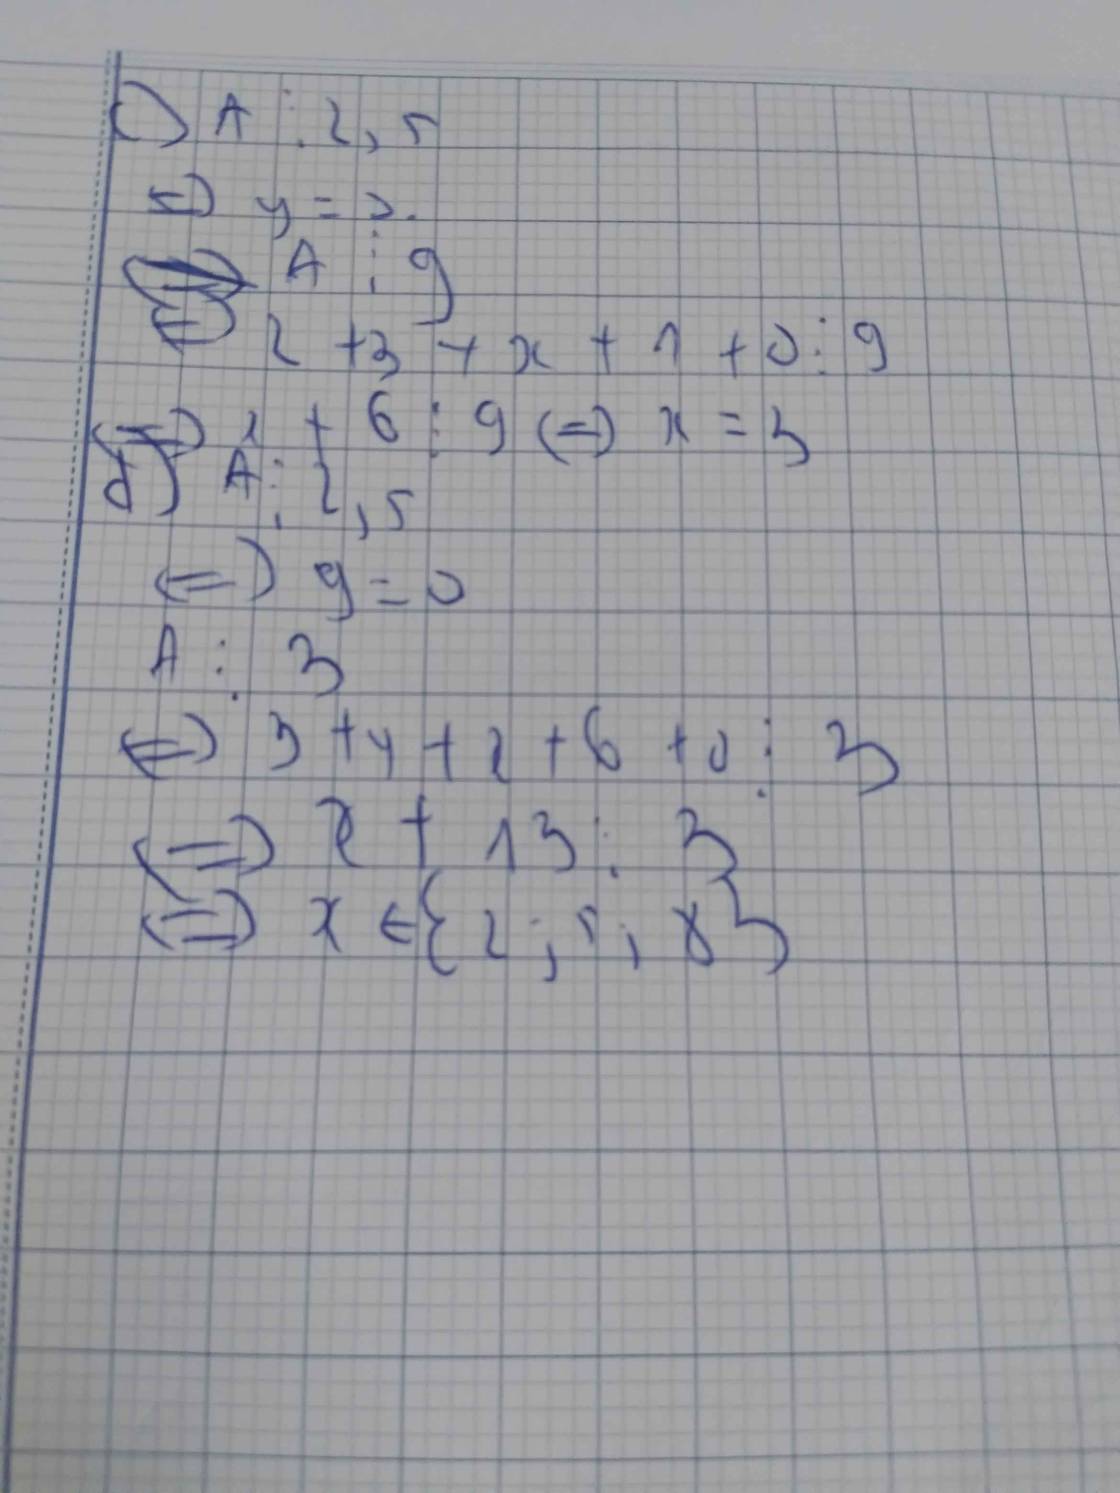 c) A ⋮ 2, 5
⇔ y = 0.
A ⋮ 9
⇔ 2 + 3 + x + 1 + 0 ⋮ 9
⇔ x + 6 ⋮ 9 ⇔ x = 3
d) A ⋮ 2, 5
⇔ y = 0
A ⋮ 3
⇔ 3 + 4 + x + 6 + 0 ⋮ 3
⇔ x + 13 ⋮ 3
⇔ x ∈ {2; 5; 8}